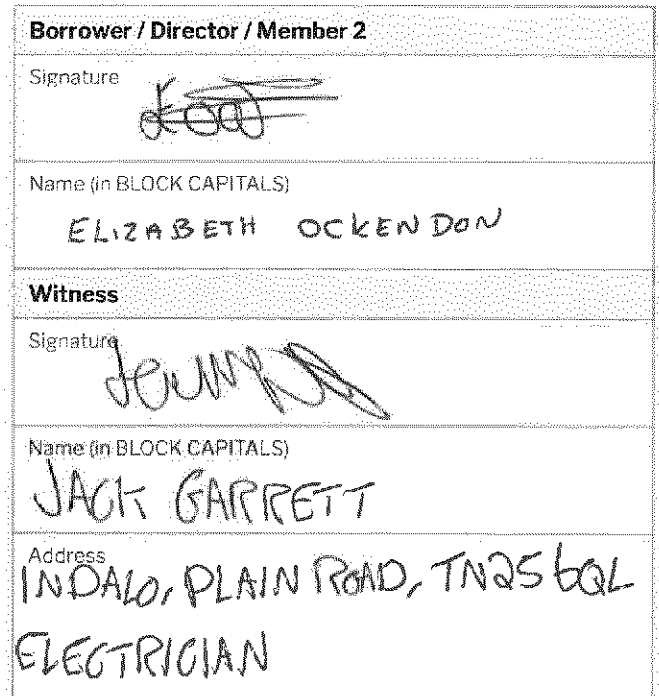 Borrower / Director / Member 2
Signature
Name (in BLOCK CAPITALS)
ELIZABETH OCKENDON
Witness
Signature
Name (in BLOCK CAPITALS)
JACK GARRETT
Address
INDALO, PLAIN ROAD, TN25 6QL
ELECTRICIAN